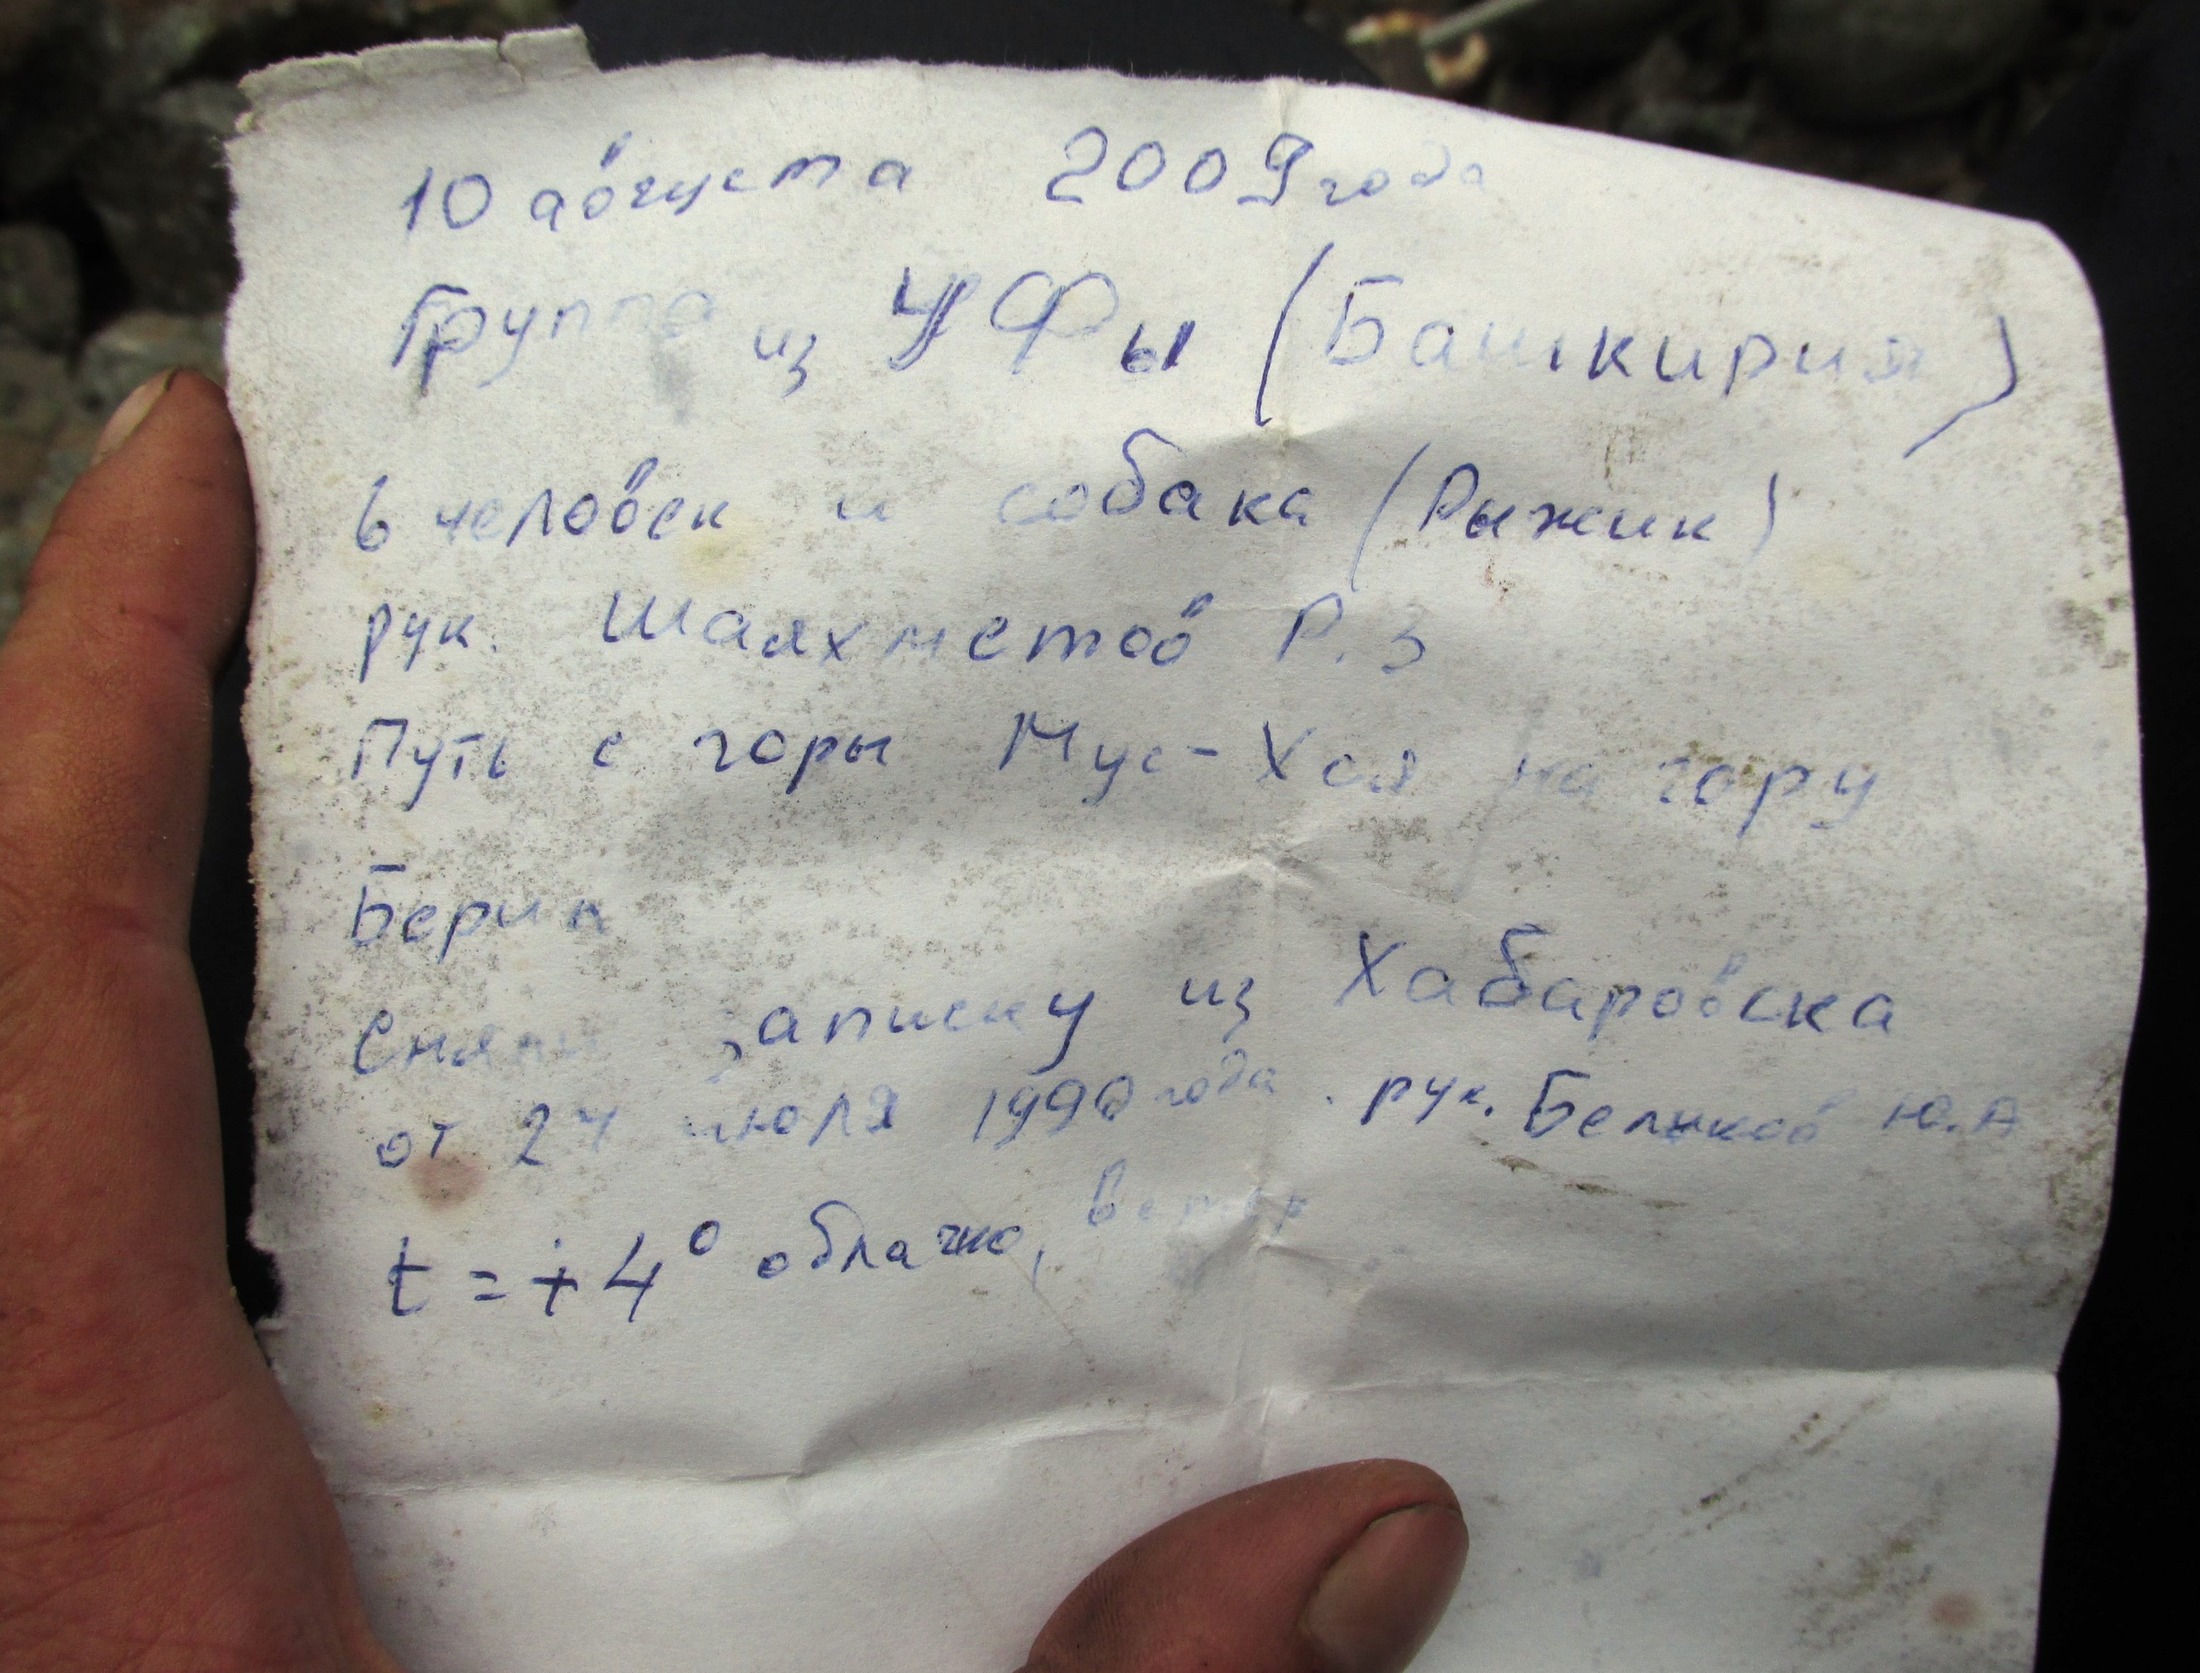 10 августа 2009 года
Группа из УФы (Башкирия)
6 человек и собака (Рыжик)
рук. Шаяхметов Р.З
Путь с горы Мус-Хая на гору
Берил
Сняли записку из Хабаровска
от 24 июля 1990 года. рук. Беликов Ю.А
t = +4° облачно, ветер